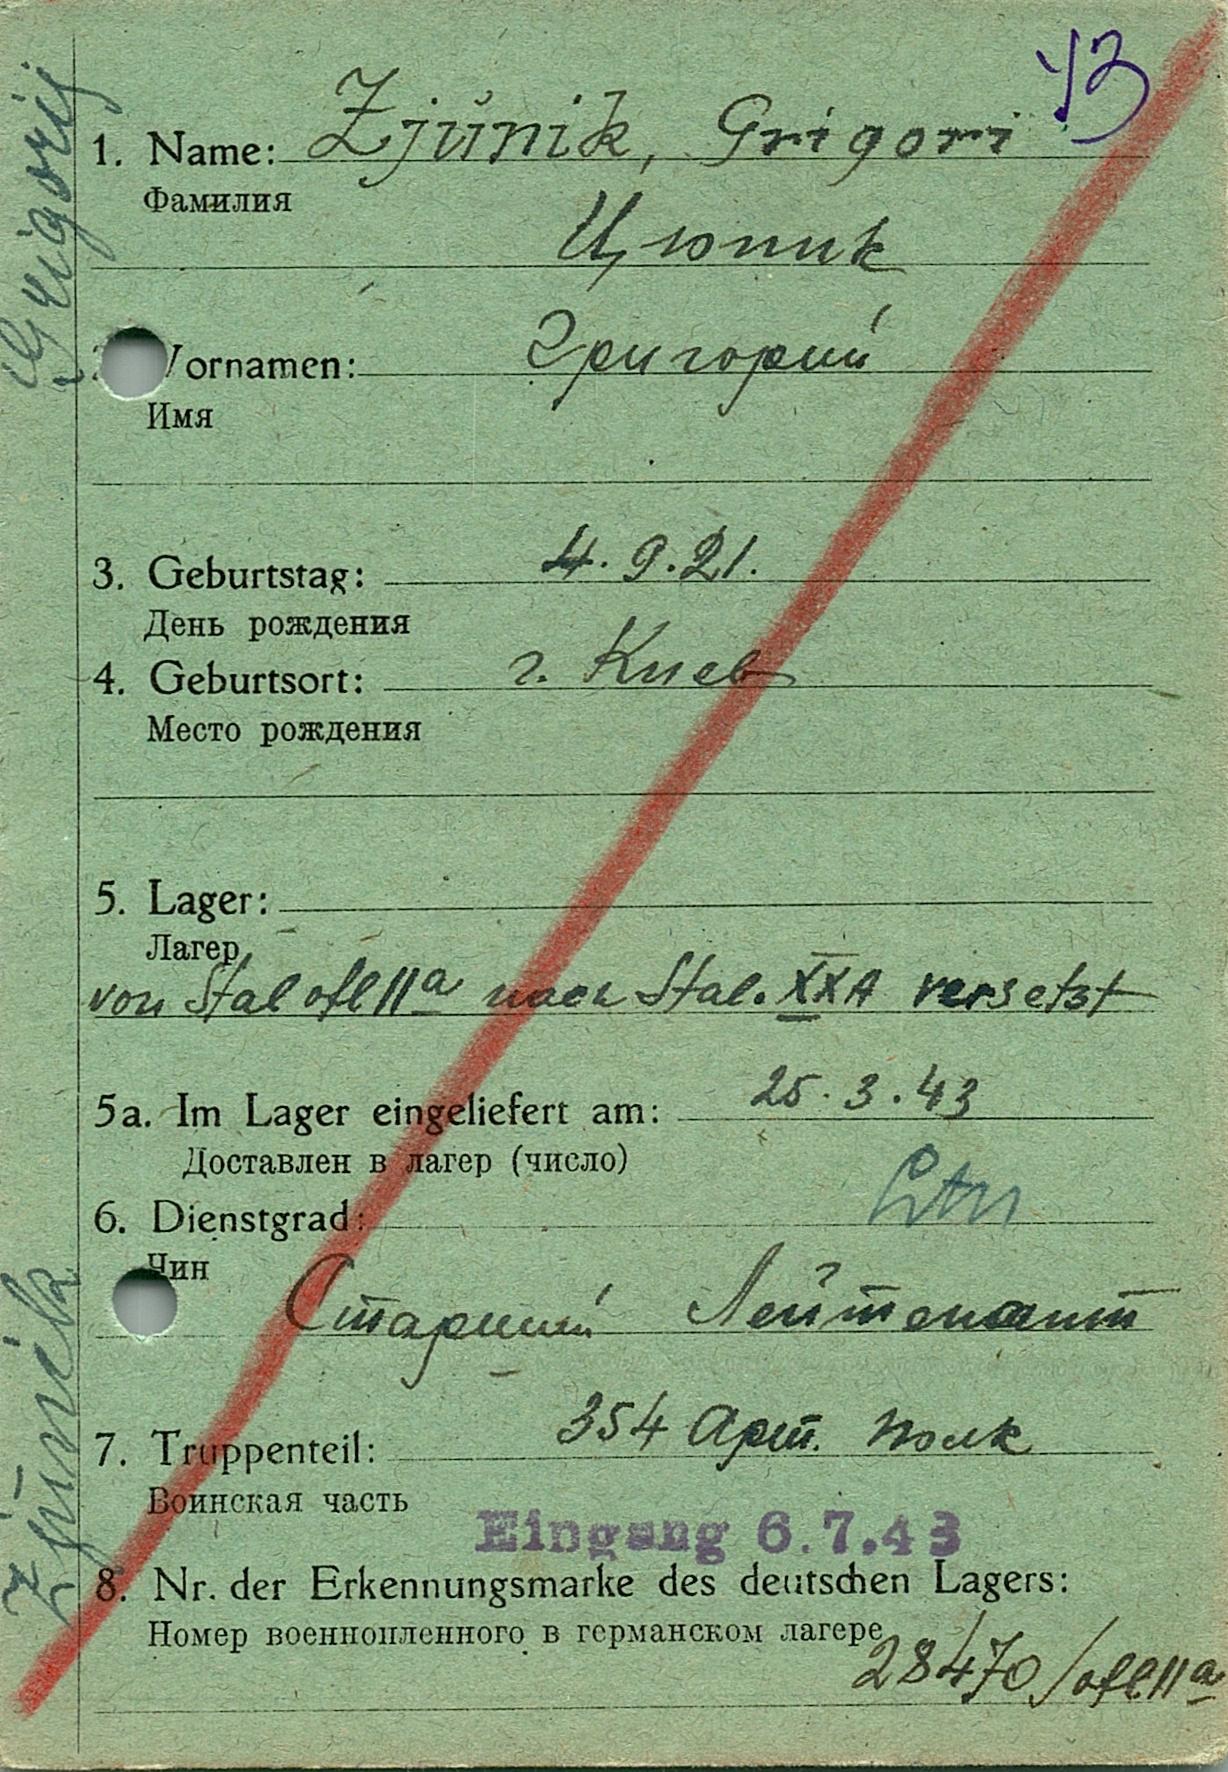 43
1. Name: Zjŭnik, Grigori
Фамилия
Цюник
Vornamen: Григорий
Имя
3. Geburtstag: 4. 9. 21.
День рождения
4. Geburtsort: г. Киев
Место рождения
5. Lager:
Лагер
von Stal ofl IIa nach Stal. XXA versetzt
5a. Im Lager eingeliefert am: 25. 3. 43
Доставлен в лагер (число)
6. Dienstgrad: Ltn
Чин
Старший Лейтенант
7. Truppenteil: 354 Арт. полк
Воинская часть
Eingang 6.7.43
8. Nr. der Erkennungsmarke des deutschen Lagers:
Номер военнопленного в германском лагере
28470/ofl IIa
Zjŭnik Grigorij